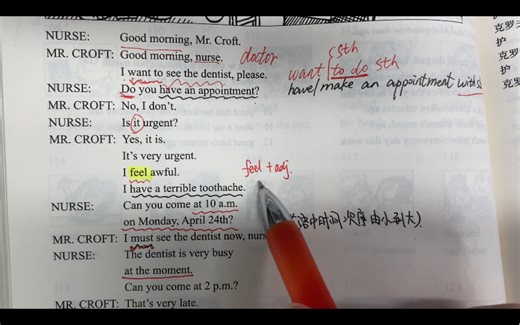 NURSE: Good morning, Mr. Croft.
MR. CROFT: Good morning, nurse. doctor
I want to see the dentist, please.
want sth
to do sth
NURSE: Do you have an appointment?
have/make an appointment with
MR. CROFT: No, I don't.
NURSE: Is it urgent?
MR. CROFT: Yes, it is.
It's very urgent.
I feel awful. feel + adj.
I have a terrible toothache.
NURSE: Can you come at 10 a.m.
on Monday, April 24th? 中时间次序由小到大)
MR. CROFT: I must see the dentist now,
NURSE: The dentist is very busy
at the moment.
Can you come at 2 p.m.?
MR. CROFT: That's very late.
克罗
护
克罗
护
克